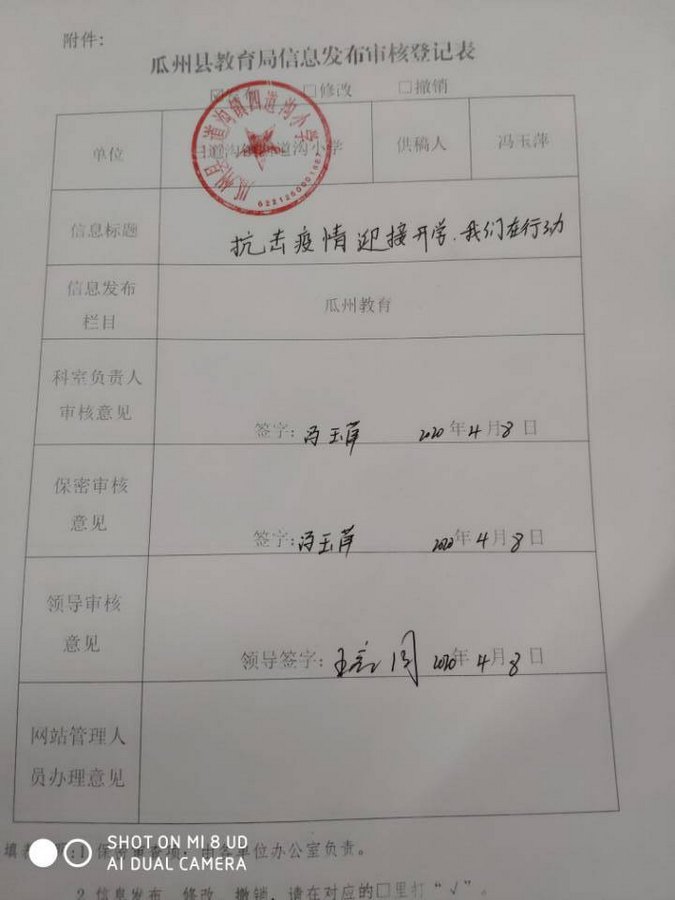 附件:
瓜州县教育局信息发布审核登记表
☑ □修改 □撤销
单位 道沟小学 供稿人 冯玉萍
信息标题 抗击疫情 迎接开学.我们在行动
信息发布
栏目
瓜州教育
科室负责人
审核意见
签字: 冯玉萍 2020年4月8日
保密审核
意见
签字: 冯玉萍 2020年4月8日
领导审核
意见
领导签字: 2020年4月8日
网站管理人
员办理意见
填 :1 保密审查项,由各单位办公室负责。
2.信息发布、修改、撤销,请在对应的□里打“√”。
瓜州县 道沟镇四道沟小学
SHOT ON MI 8 UD
AI DUAL CAMERA